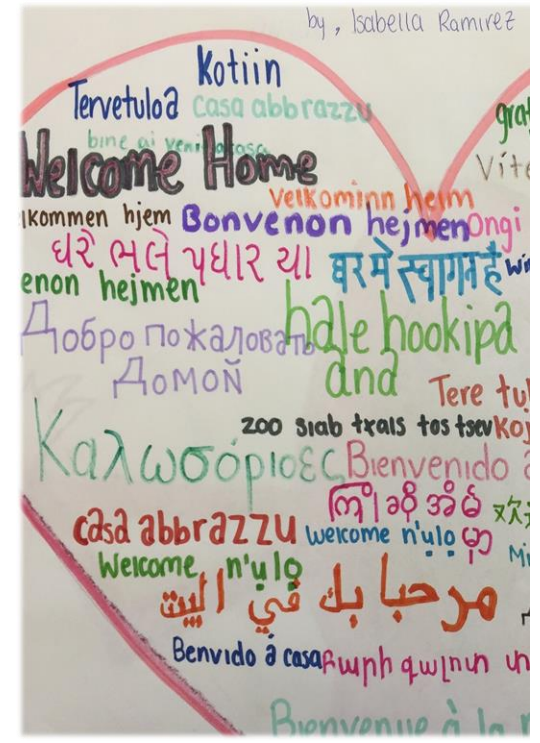 by, Isabella Ramirez
Kotiin
Tervetuloa casa abbrazzu
gra
bine ai veni acasa
Welcome Home
Víte
Velkominn heim
lkommen hjem Bonvenon hejmen Ongi
ઘરે ભલે પધાર યા घर मे स्वागत है Wi
enon hejmen
Добро пожаловать hale hookipa
Домой and
Tere tu
zoo siab txais tos tsev Koj
Καλωσόρισες Bienvenido a
ကြိုဆိုအိမ် 欢
casa abbrazzu welcome n'ụlọ မှာ
Welcome n'ụlọ Mi
مرحبا بك في البيت
Benvido á casa Բարի գալուստ տ
Bienvenue à la